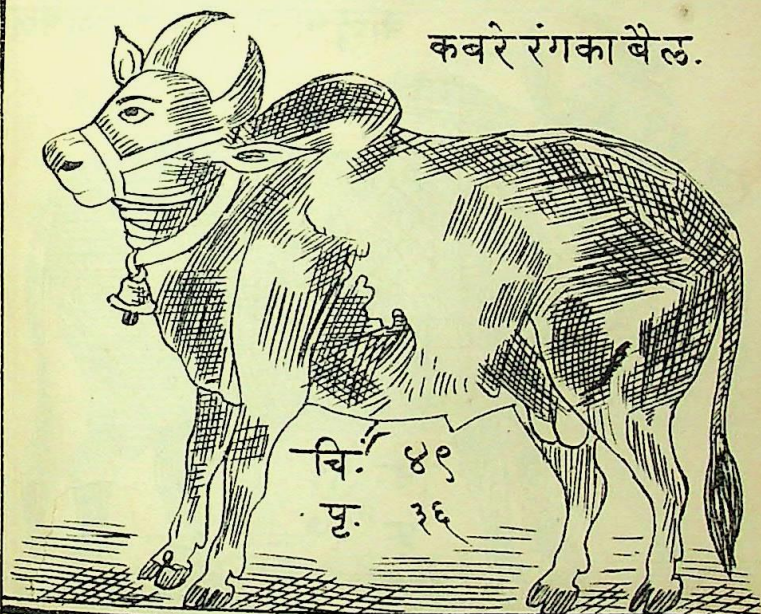 कबरे रंगका बैल.
चि. ४९
पृ. ३६